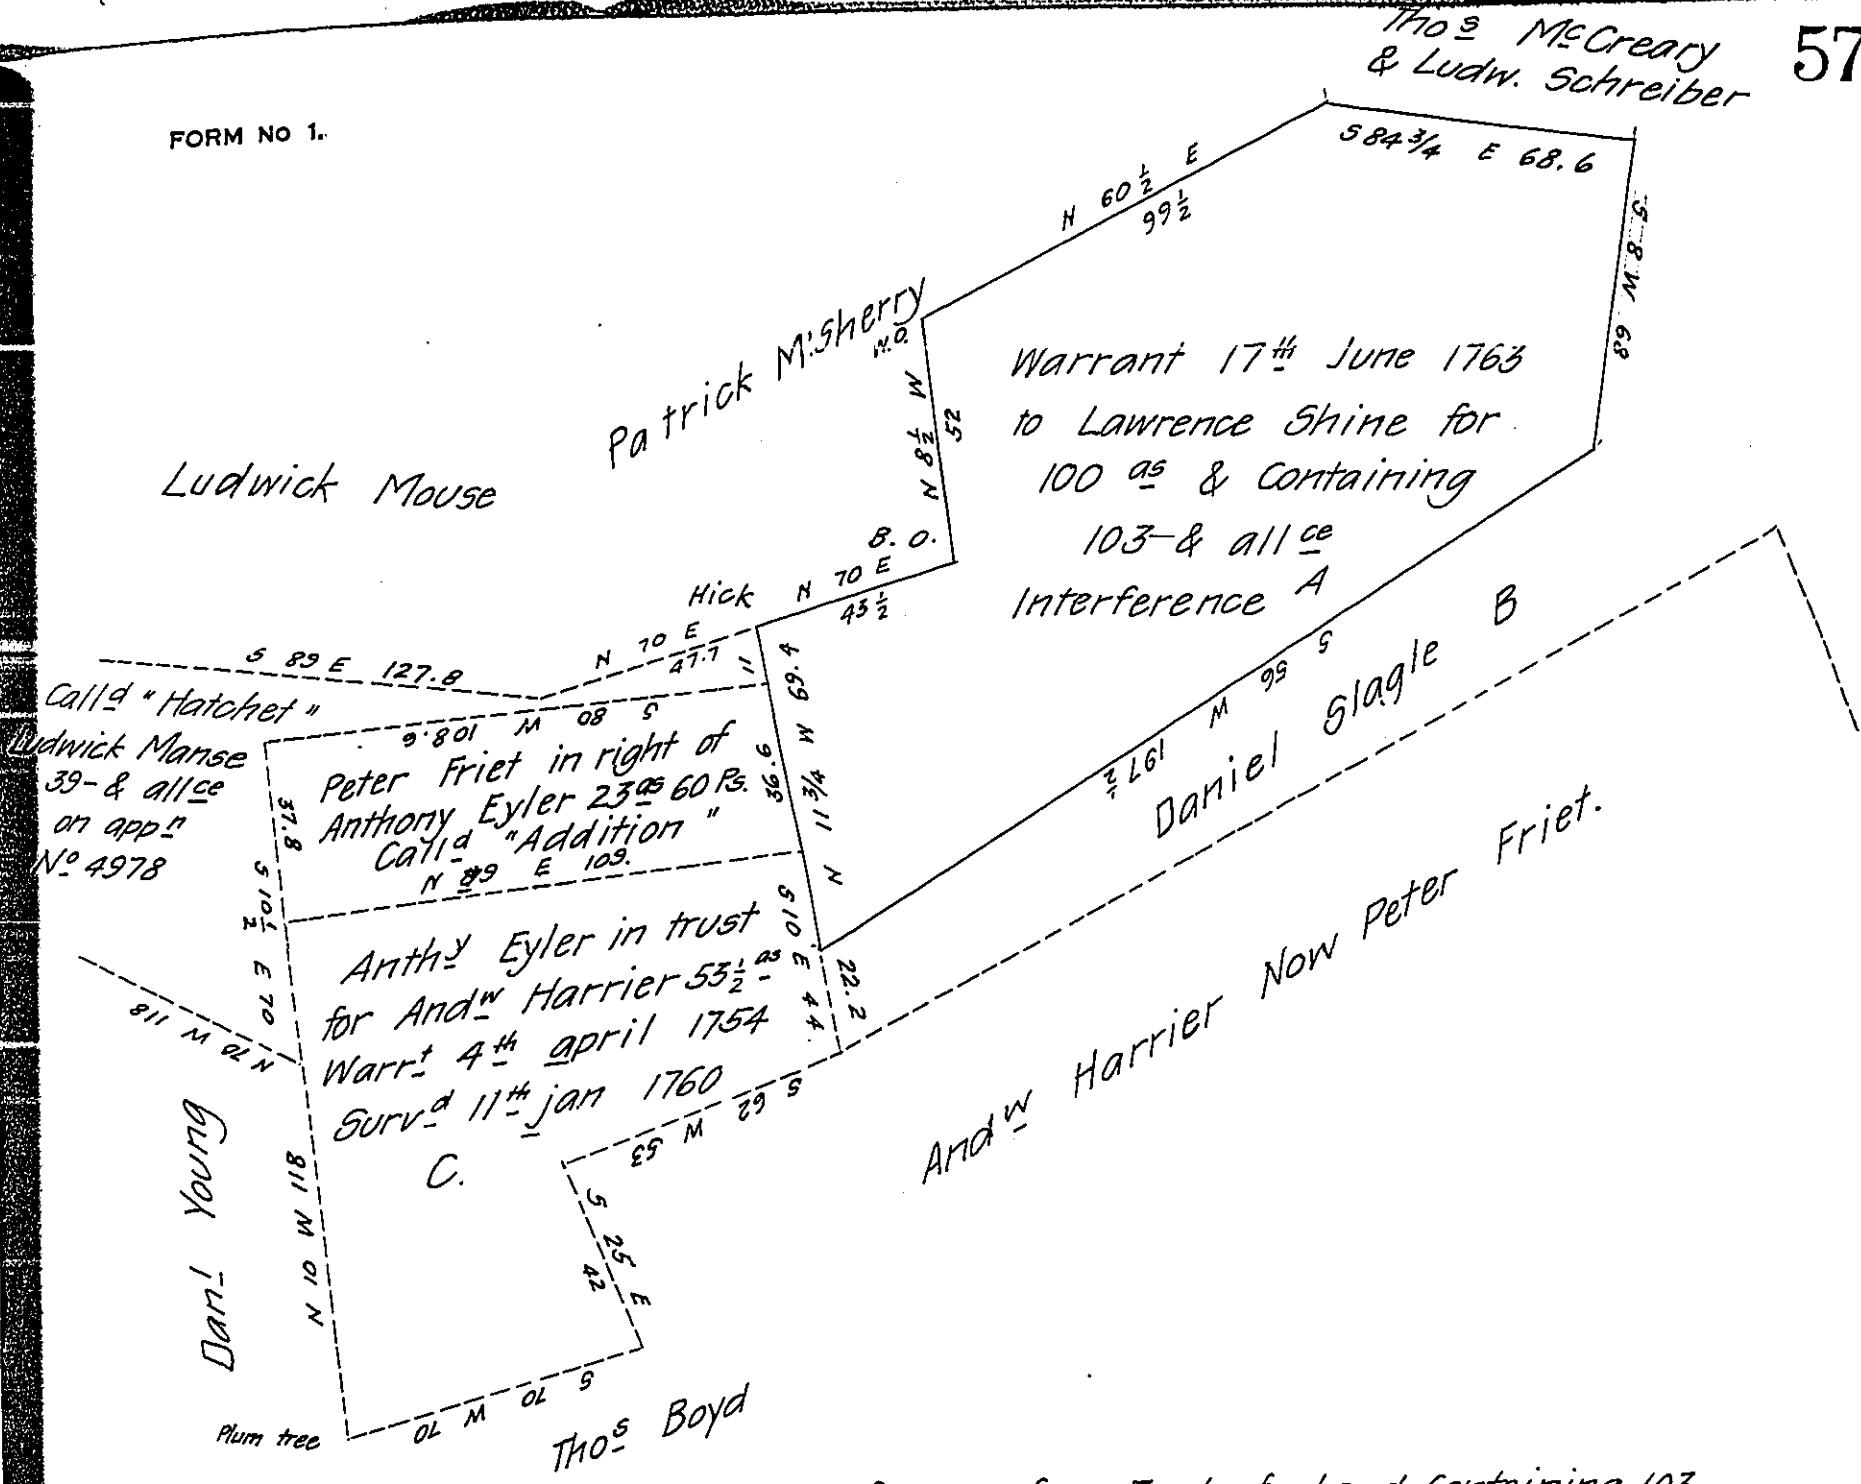 Thos McCreary
& Ludw. Schreiber
57
FORM NO 1.
S 84 3/4 E 68.6
N 60 1/2 E
99 1/2
S 8 W 68
Patrick McSherry
W.O.
N 8 1/2 W
52
Warrant 17th June 1763
to Lawrence Shine for
100 as & Containing
103-& allce
Interference A
Ludwick Mouse
B. O.
Hick
N 70 E
43 1/2
N 70 E
47.7
11
S 89 E 127.8
Calld "Hatchet"
Ludwick Manse
39-& allce
on appn
No 4978
S 80 W 108.6
Peter Friet in right of
Anthony Eyler 23as 60 Ps.
Calld "Addition"
N 89 E 109.
37.8
36.6
N 11 3/4 W 69.4
S 56 W
197 1/2
Daniel Slagle B
Andw Harrier Now Peter Friet.
S 10 1/2 E 70
Anthy Eyler in trust
for Andw Harrier 53 1/2 as
Warrt 4th april 1754
Survd 11th jan 1760
C.
S 10 E 44
22.2
N 70 W 118
S 62 W 53
Danl Young
N 10 W 118
S 25 E
42
S 70 W 70
Plum tree
Thos Boyd